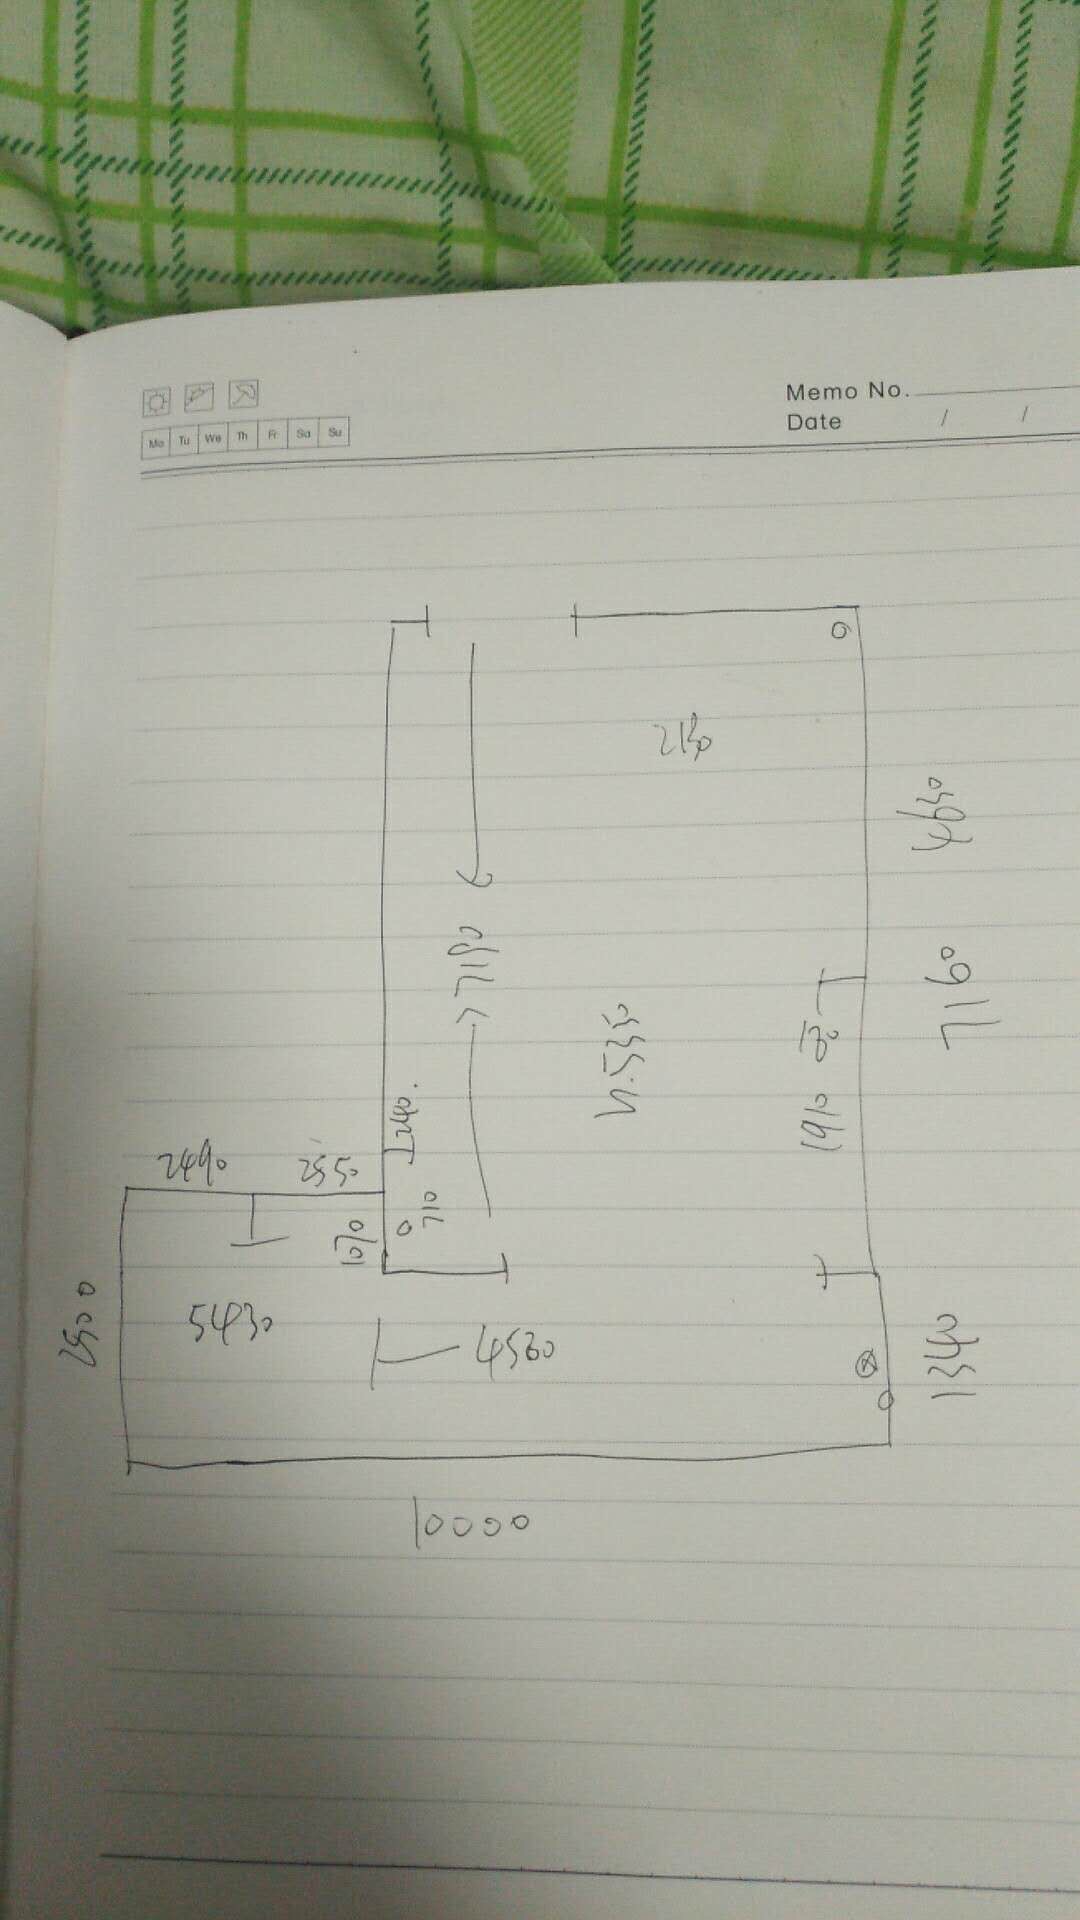 Memo No.
Date / /
Mo Tu We Th Fr Sa Su
4630
7180
7160
1910
240
2490
2550
710
1070
2500
5430
4560
1340
10000